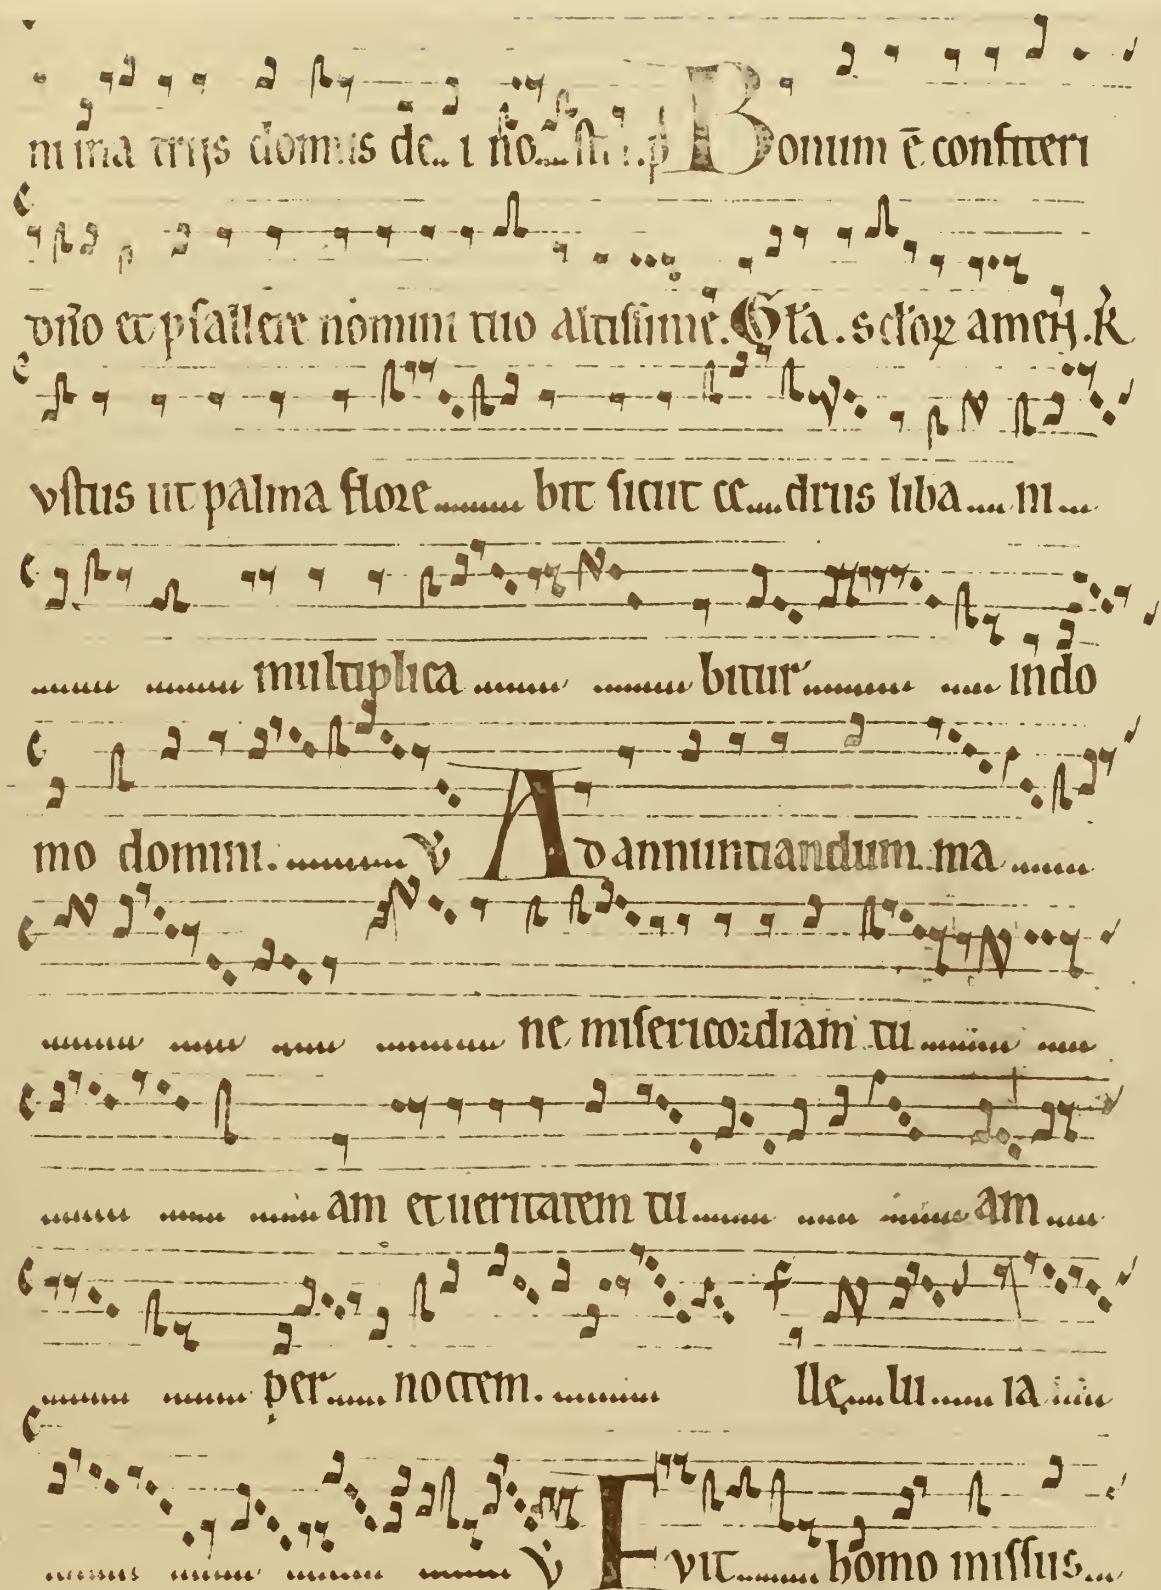 mina trijs domus de.. i no.... stri. p Bonum ē confiteri
dn̄o et psallere nomini tuo altissime. Gl̄a. scl̄oꝝ amen. R
vstus ut palma flore...... bit sicut ce....drus liba....ni...
multiplica bitur indo
mo domini. V̇ Ad annuntiandum ma
ne misericordiam tu
am et ueritatem tu am
per noctem. llę lu ia
V̇ Fvit homo missus